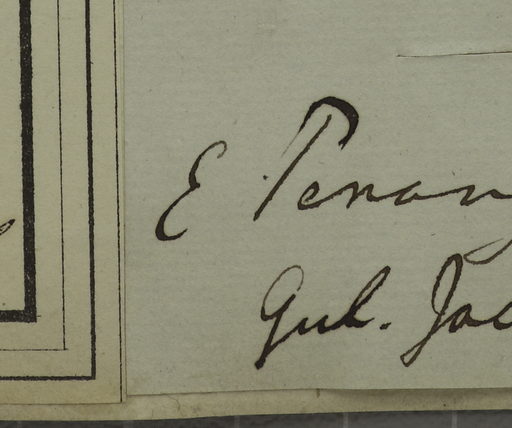 E Penang
Gul. Jac